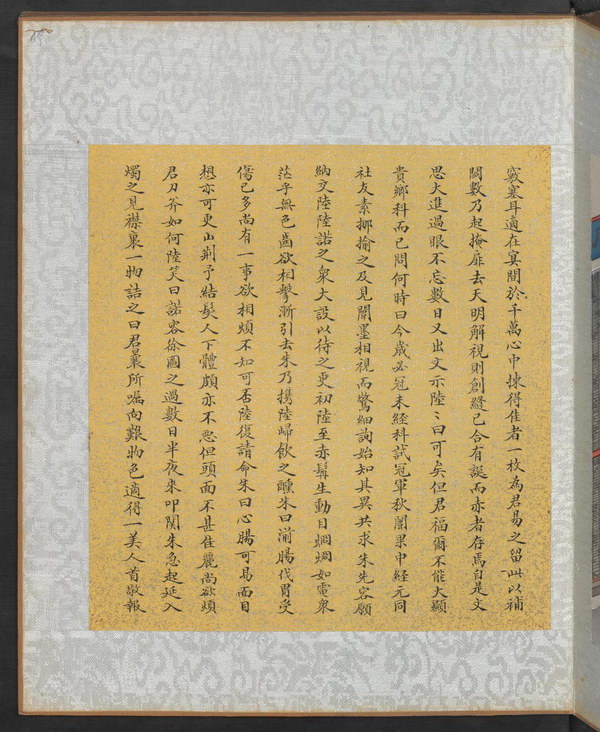 竅塞耳適在冥間於千萬心中揀得佳者一枚為君易之留此以補
闕數乃起掩扉去天明解視則創縫已合有誕而赤者存焉自是文
思大進過眼不忘數日又出文示陸〻曰可矣但君福爾不能大顯
貴鄉科而已問何時曰今歲必冠未經科試冠軍秋闈果中經元同
社友素揶揄之及見闈墨相視而驚細詢始知其異共求朱先容願
納交陸陸諾之眾大設以待之更初陸至赤髯生動目炯炯如電眾
茫乎無色齒欲相擊漸引去朱乃攜陸歸飲之醺朱曰湔腸伐胃受
傷已多尚有一事欲相煩不知可否陸復請命朱曰心腸可易面目
想亦可更山荊予結髮人下體頗亦不惡但頭面不甚佳麗尚欲煩
君刀斧如何陸笑曰諾容徐圖之過數日半夜來叩關朱急起延入
燭之見襟裹一物詰之曰君曩所囑向艱物色適得一美人首敬報